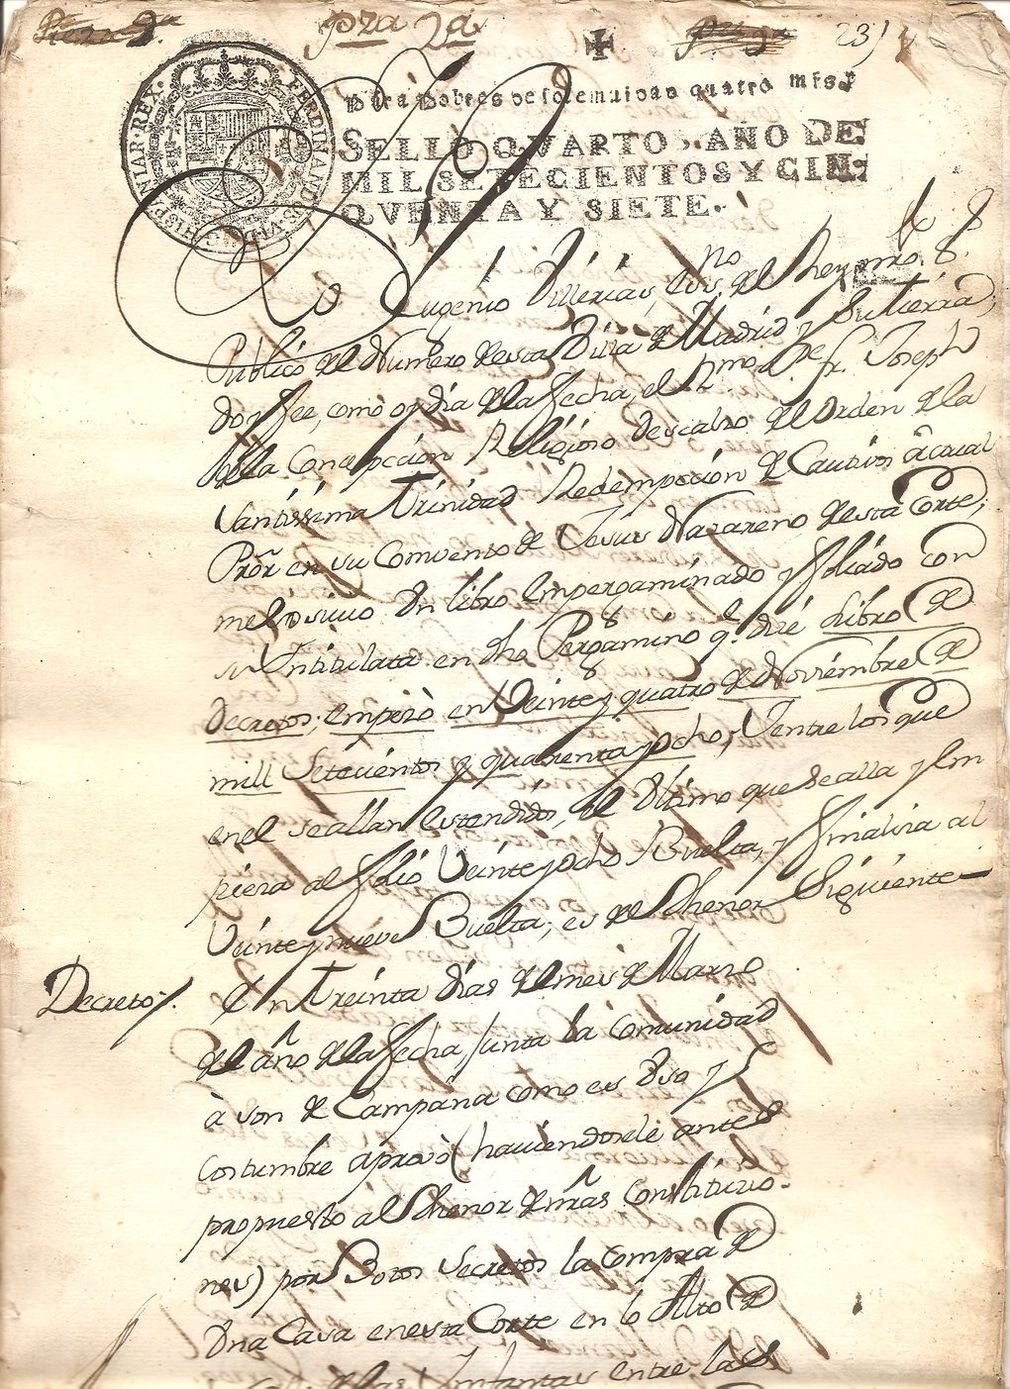 pza 2a
23
HISPANIAR. REX. FERDINANDUS VI D. G.
Para Pobres de solemnidad quatro mrs.
SELLO QVARTO, AÑO DE
MIL SETECIENTOS Y CIN-
QVENTA Y SIETE.
Yo Eugenio Villerias, Essno del Rey nro. S.
Publico del Numero de esta Villa de Madrid y su tierra,
doy fee, como oy dia de la fecha, el Rmo Pe fr. Joseph
de la Concepcion Religioso descalzo del Orden de la
Santissima Trinidad Redempcion de Cautivos actual
Pror en su Convento de Jesus Nazareno de esta Corte;
me exsivio Un libro Empergaminado y foliado con
su Intitulata en dho Pergamino qe. dize Libro de
decretos; empezò en Veinte y quatro de Noviembre de
mill Setecientos y quarenta y ocho, y entre los que
en el se allan estendidos, el Ultimo que se alla y Em
pieza al folio Veinte y ocho Buelta, y finaliza al
Veinte y nueve Buelta, es del thenor Siguiente
Decreto. En treinta dias del mes de Marzo
del año de la fecha, junta la Comunidad
à son de Campana como es Uso y
Costumbre aprovò (haviendosele antes
propuesto al thenor de nrãs Constitucio-
nes) por Botos Secretos la Compra de
Una Casa en esta Corte en lo Alto de
las Infantas entre las